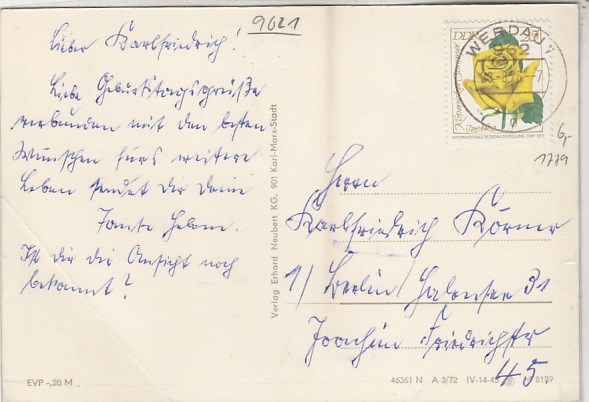 9621
Lieber Karlfriedrich!
Liebe Geburtstagsgrüße
verbunden mit den besten
Wünschen fürs weitere
Leben sendet dir deine
Tante Helene.
Ist dir die Ansicht noch
bekannt?
EVP -,20 M
Verlag Erhard Neubert KG, 901 Karl-Marx-Stadt
DDR
WERDAU 1
962
6,-
1779
Herrn
Karlfriedrich Körner
1/ Berlin Halensee 31
Joachim Friedrichstr
45.
46361 N A 3/72 IV-14-45 8159